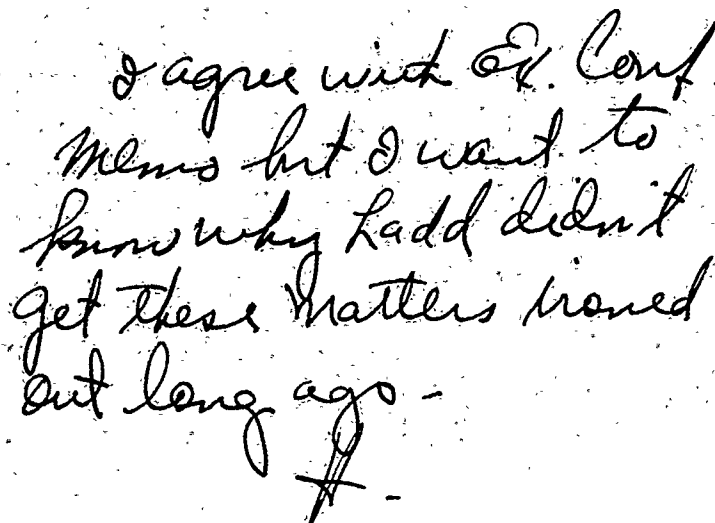 I agree with Ex. Conf
Memo but I want to
know why Ladd didn't
get these matters ironed
out long ago -
H. -